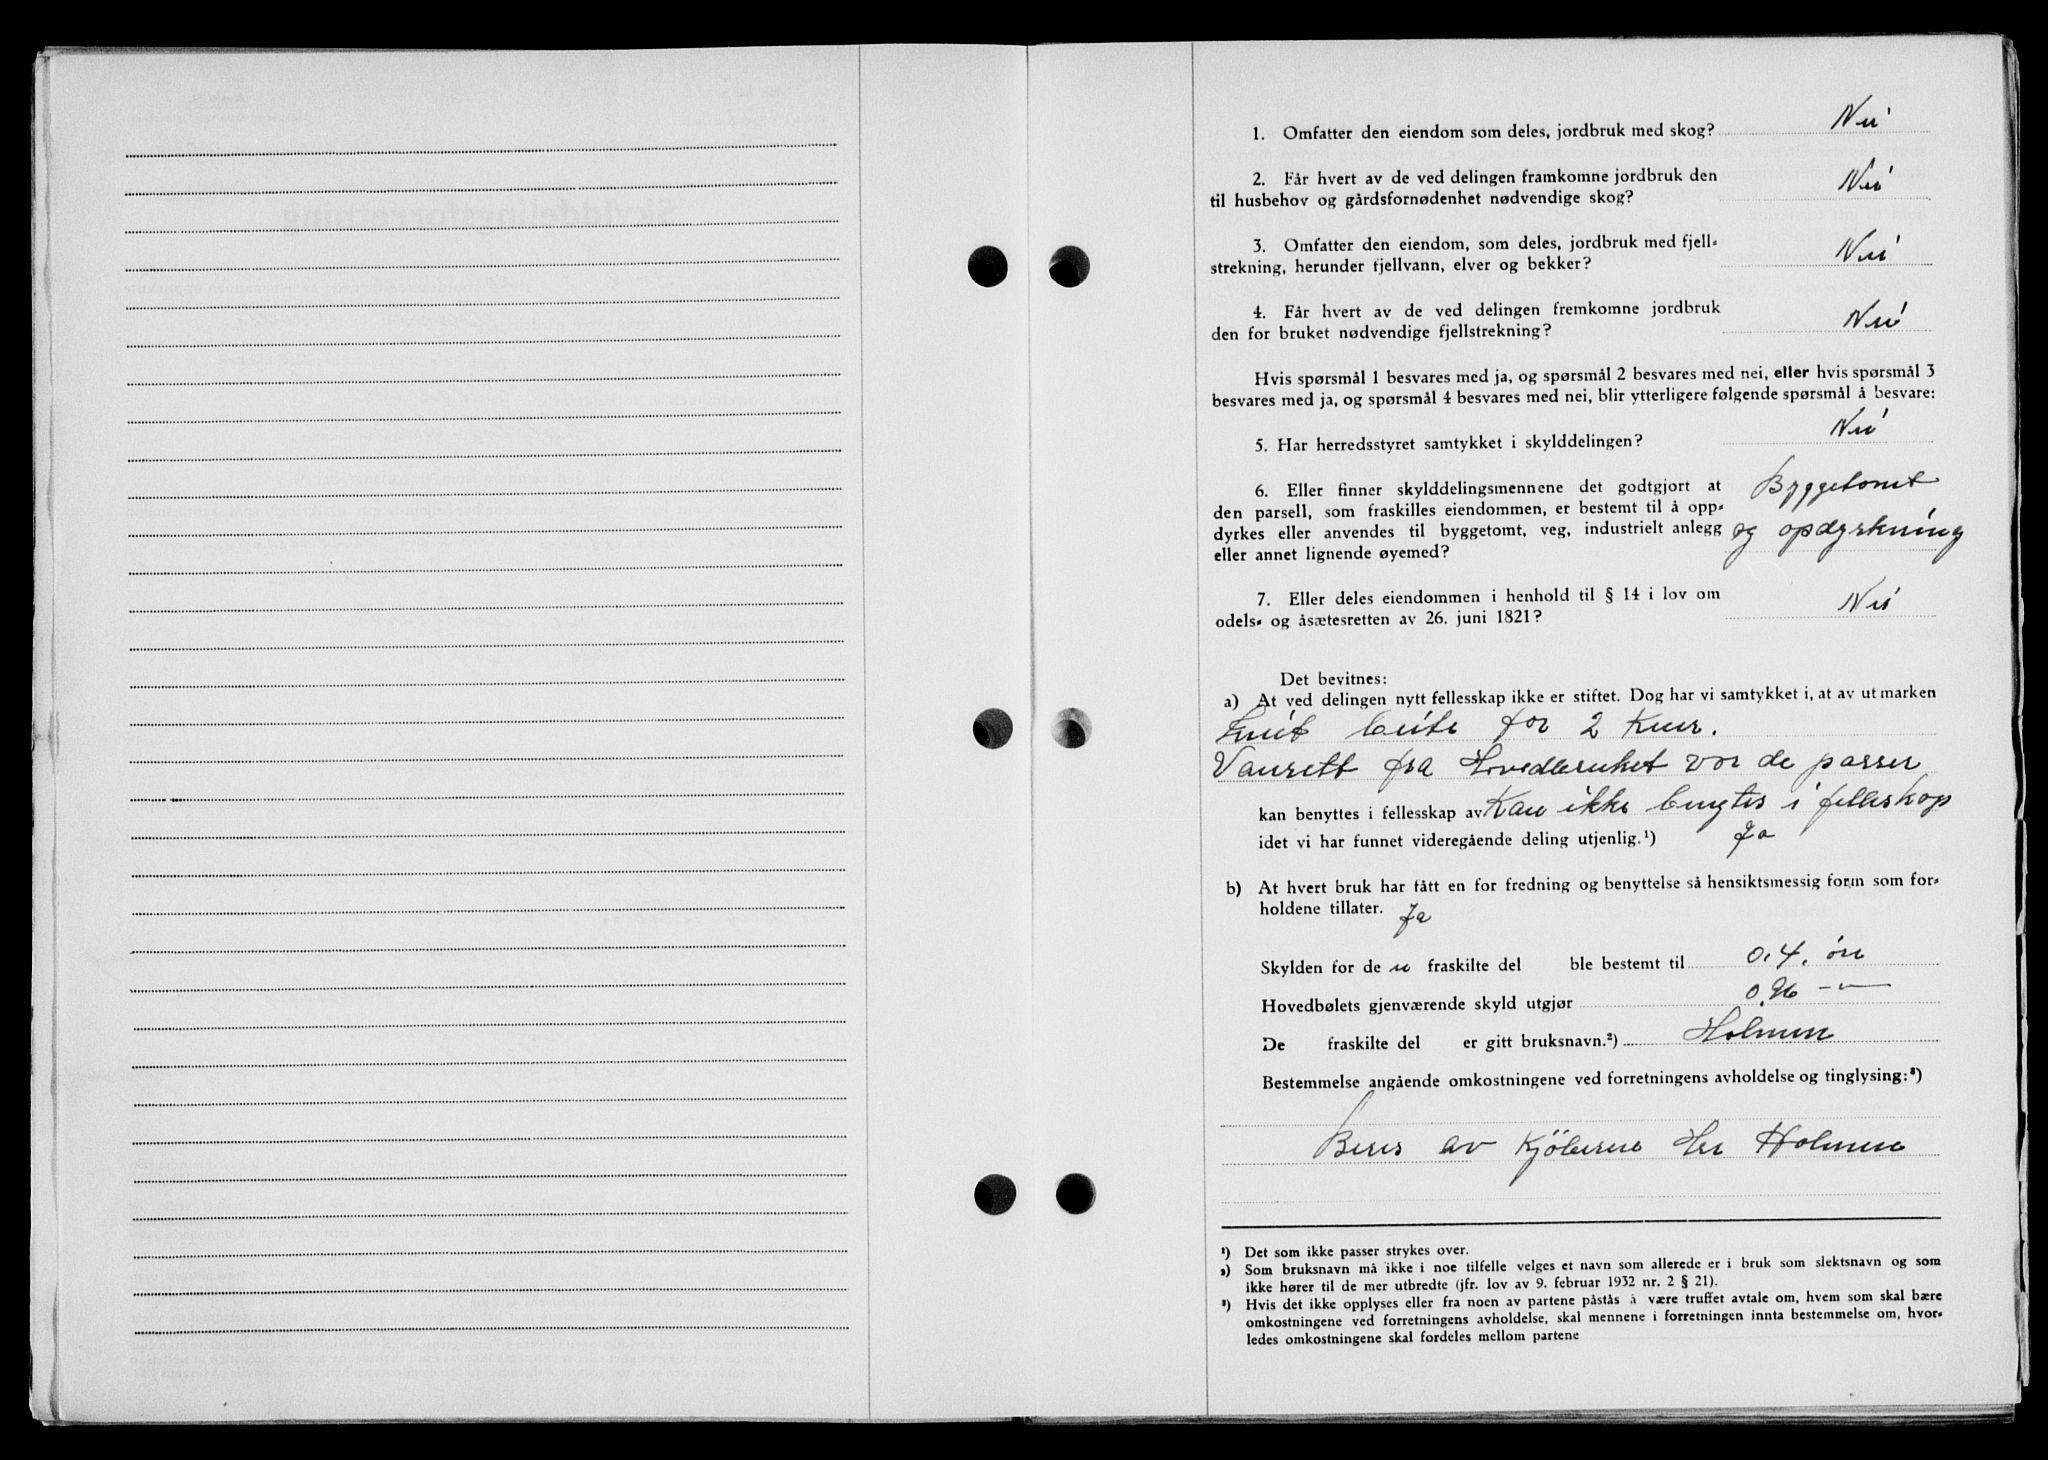 1. Omfatter den eiendom som deles, jordbruk med skog? Nei
2. Får hvert av de ved delingen framkomne jordbruk den
til husbehov og gårdsfornødenhet nødvendige skog? Nei
3. Omfatter den eiendom, som deles, jordbruk med fjell-
strekning, herunder fjellvann, elver og bekker? Nei
4. Får hvert av de ved delingen fremkomne jordbruk
den for bruket nødvendige fjellstrekning? Nei
Hvis spørsmål 1 besvares med ja, og spørsmål 2 besvares med nei, eller hvis spørsmål 3
besvares med ja, og spørsmål 4 besvares med nei, blir ytterligere følgende spørsmål å besvare:
5. Har herredsstyret samtykket i skylddelingen? Nei
6. Eller finner skylddelingsmennene det godtgjort at Byggetomt
den parsell, som fraskilles eiendommen, er bestemt til å opp-
dyrkes eller anvendes til byggetomt, veg, industrielt anlegg og opdyrkning
eller annet lignende øyemed?
7. Eller deles eiendommen i henhold til § 14 i lov om
odels- og åsætesretten av 26. juni 1821? Nei
Det bevitnes:
a) At ved delingen nytt fellesskap ikke er stiftet. Dog har vi samtykket i, at av utmarken
beite for 2 Kuer.
Vanrett fra Hovedbruket vor de passer
kan benyttes i fellesskap av Kan ikke bengtes i felleskap
idet vi har funnet videregående deling utjenlig.¹) Ja
b) At hvert bruk har fått en for fredning og benyttelse så hensiktsmessig form som for-
holdene tillater. Ja
Skylden for de n fraskilte del ble bestemt til 0,4, øre
Hovedbølets gjenværende skyld utgjør 0,96 —"—
De fraskilte del er gitt bruksnavn.²) Holmen
Bestemmelse angående omkostningene ved forretningens avholdelse og tinglysing:³)
Beres av Kjöberne Her Holmen
¹) Det som ikke passer strykes over.
²) Som bruksnavn må ikke i noe tilfelle velges et navn som allerede er i bruk som slektsnavn og som
ikke hører til de mer utbredte (jfr. lov av 9. februar 1932 nr. 2 § 21).
³) Hvis det ikke opplyses eller fra noen av partene påstås å være truffet avtale om, hvem som skal bære
omkostningene ved forretningens avholdelse, skal mennene i forretningen innta bestemmelse om, hvor-
ledes omkostningene skal fordeles mellom partene